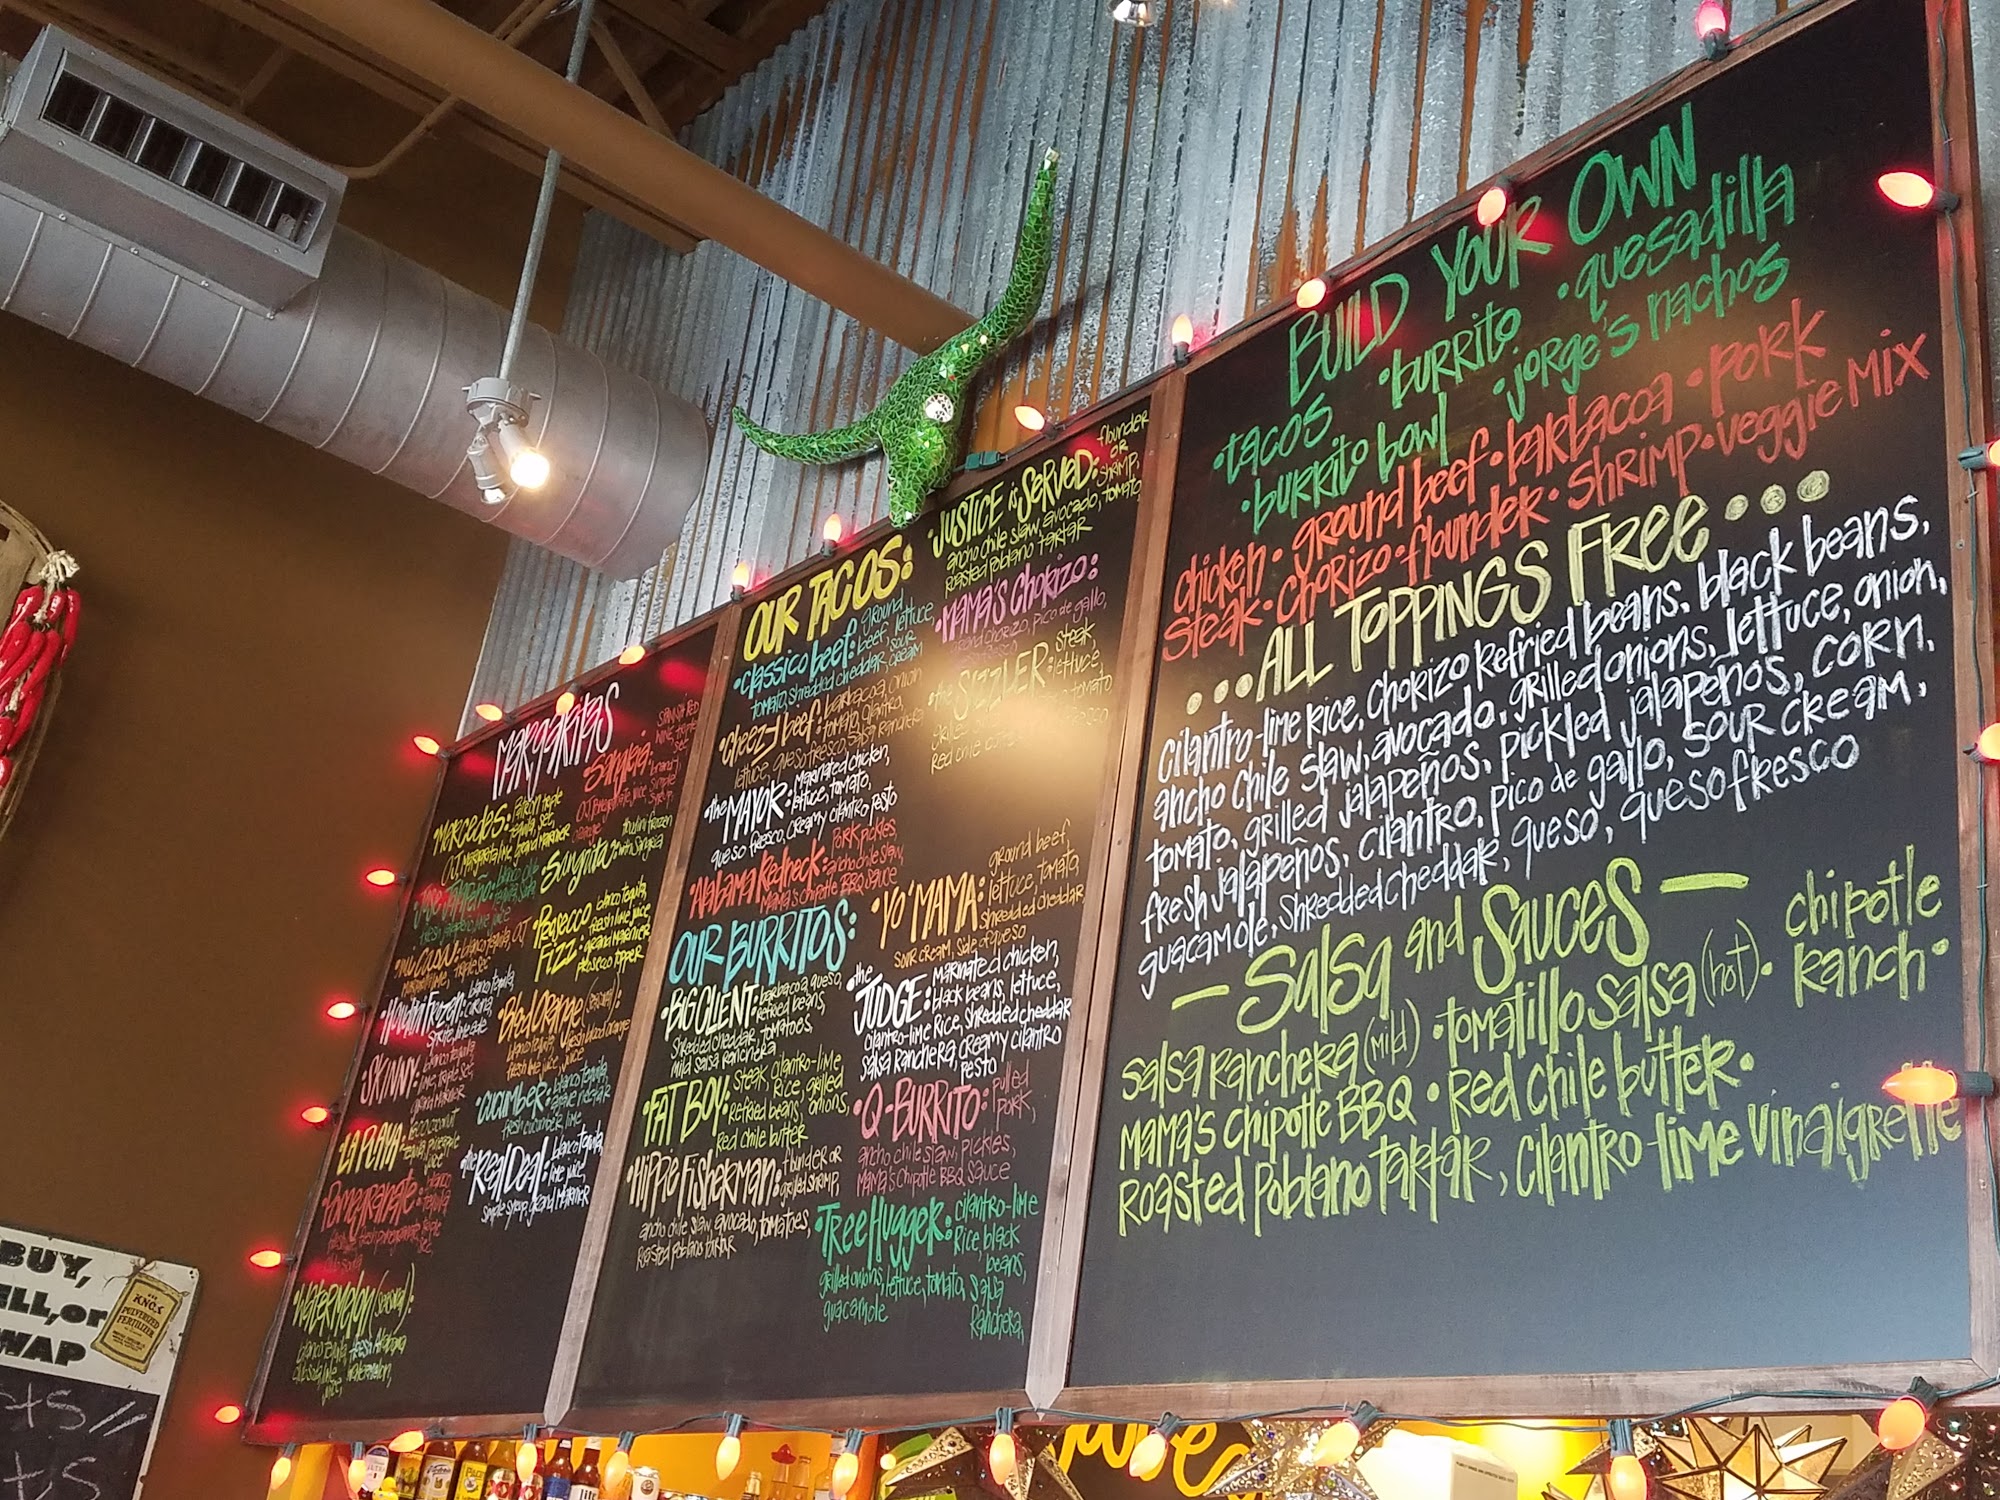 MARGARITAS
•Sangria: SPANISH RED WINE, triple sec, brandy, OJ, simple syrup
•MERCEDES: Patron
tequila,
OJ, Margarita
•Sungrita: Houlini frozen with Sangria
•Jalapeño: blanco
fresh jalapeño, lime juice
•PROSECCO FIZZ: blanco tequila,
fresh lime juice,
grand marnier
prosecco topper
•mi casa: blanco tequila, OJ
triple sec
•Frozen: blanco tequila,
•Blood Orange (seasonal):
blanco tequila, fresh blood orange
fresh lime juice
•SKINNY: blanco tequila,
lime, triple sec,
grand marnier
•cucumber: blanco tequila, agave nectar
fresh cucumber, lime
•LA PLAYA: coconut
tequila, pineapple
juice
•the Real Deal: blanco tequila,
lime juice,
simple syrup, grand marnier
•Pomegranate: blanco tequila,
fresh pomegranate, triple sec,
•Watermelon (seasonal):
blanco tequila, fresh
lime, watermelon,
juice
OUR TACOS:
•classico beef: ground
beef, lettuce,
tomato, shredded cheddar, sour cream
•cheezy beef: barbacoa, onion
tomato, cilantro,
lettuce, queso fresco, salsa ranchera
•the MAYOR: Marinated chicken,
lettuce, tomato,
queso fresco, creamy cilantro pesto
•'Alabama Redneck: Pork pickles,
ancho chile slaw,
Mama's Chipotle BBQ sauce
•JUSTICE is SERVED: flounder
OR
shrimp,
ancho chile slaw, avocado, tomato
Roasted poblano tartar
•MAMA'S CHORIZO:
ground chorizo, pico de gallo,
•the SIZZLER: steak,
lettuce,
grilled tomato
Red chile
OUR BURRITOS:
•BIG CLIENT: barbacoa, queso,
refried beans,
shredded cheddar, tomatoes,
mild salsa ranchera
•FAT BOY: steak, cilantro-lime
rice, grilled
refried beans, onions,
Red chile butter
•Hippie Fisherman: flounder or
grilled shrimp,
ancho chile slaw, avocado, tomatoes,
Roasted poblano tartar
•YO' MAMA: ground beef,
lettuce, tomato,
shredded cheddar,
sour cream, side of queso
•the JUDGE: Marinated chicken,
black beans, lettuce,
cilantro-lime Rice, shredded cheddar
Salsa Ranchera, creamy cilantro
pesto
•Q-BURRITO: pulled
pork,
ancho chile slaw, pickles,
Mama's Chipotle BBQ sauce
•Tree Hugger: cilantro-lime
Rice, black
beans,
grilled onions, lettuce, tomato, salsa
guacamole Ranchera,
BUILD YOUR OWN
•tacos •burrito •quesadilla
•burrito bowl •jorge's nachos
chicken • ground beef • barbacoa • pork
steak • chorizo • flounder • shrimp • veggie mix
...ALL TOPPINGS FREE...
cilantro-lime rice, chorizo refried beans, black beans,
ancho chile slaw, avocado, grilled onions, lettuce, onion,
tomato, grilled jalapeños, pickled jalapeños, corn,
fresh jalapeños, cilantro, pico de gallo, sour cream,
guacamole, shredded cheddar, queso, queso fresco
— Salsa and Sauces —
salsa ranchera (mild) • tomatillo salsa (hot) • chipotle ranch •
mama's chipotle BBQ • Red chile butter •
Roasted poblano tartar, cilantro-lime vinaigrette
BUY,
ELL, or
WAP
PULVERIZED
FERTILIZER